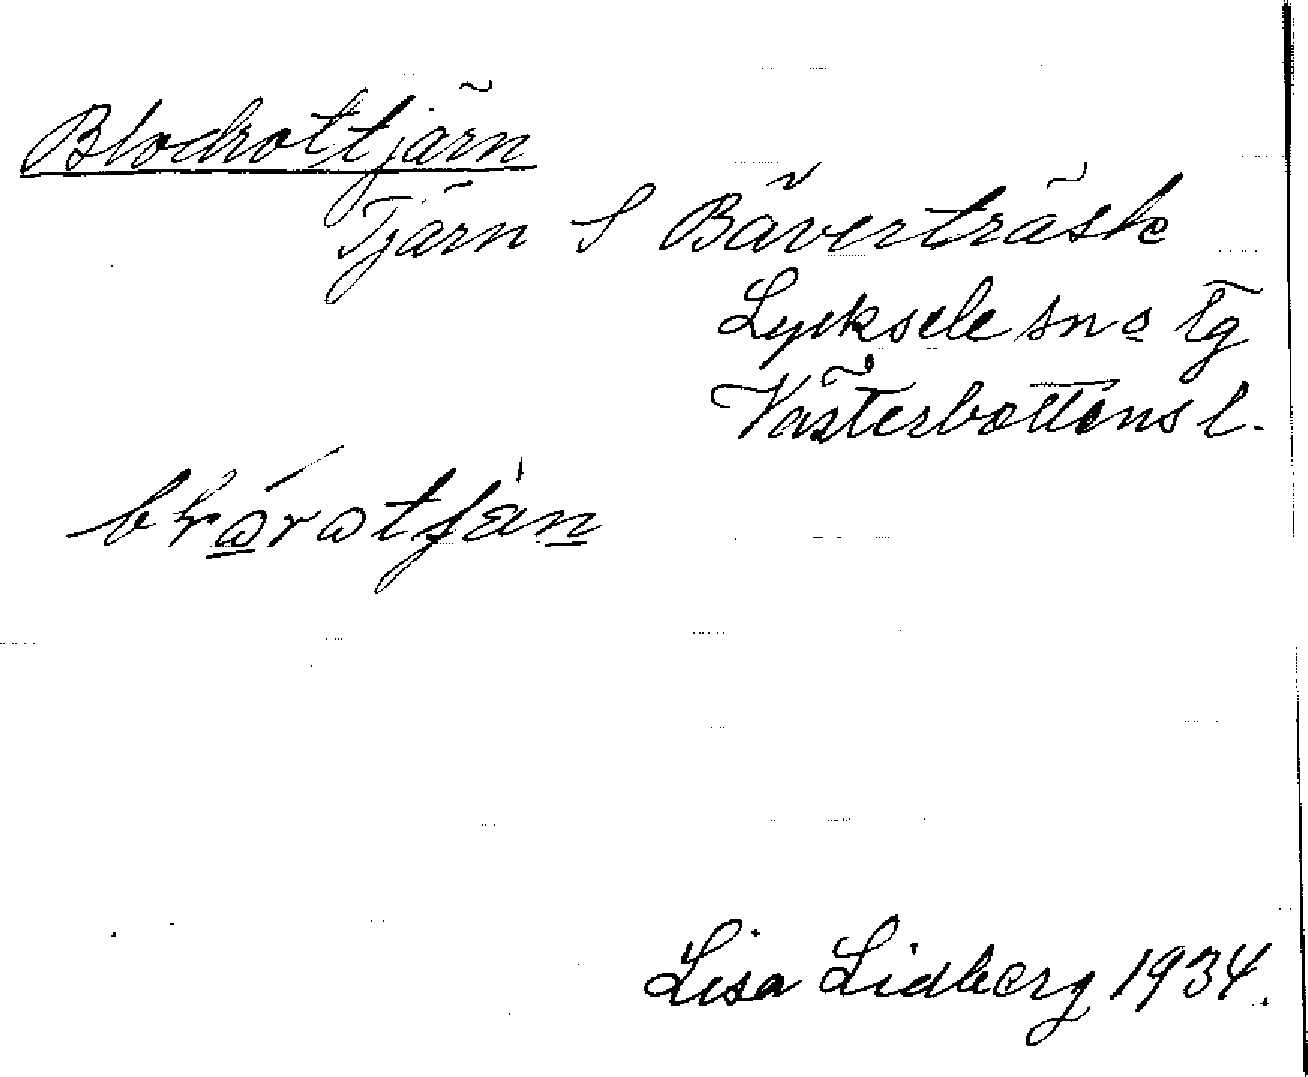 Blodrottjärn
Tjärn S Bäverträsk
Lycksele sn o tg
Västerbottens l.
Lisa Lidberg 1934.